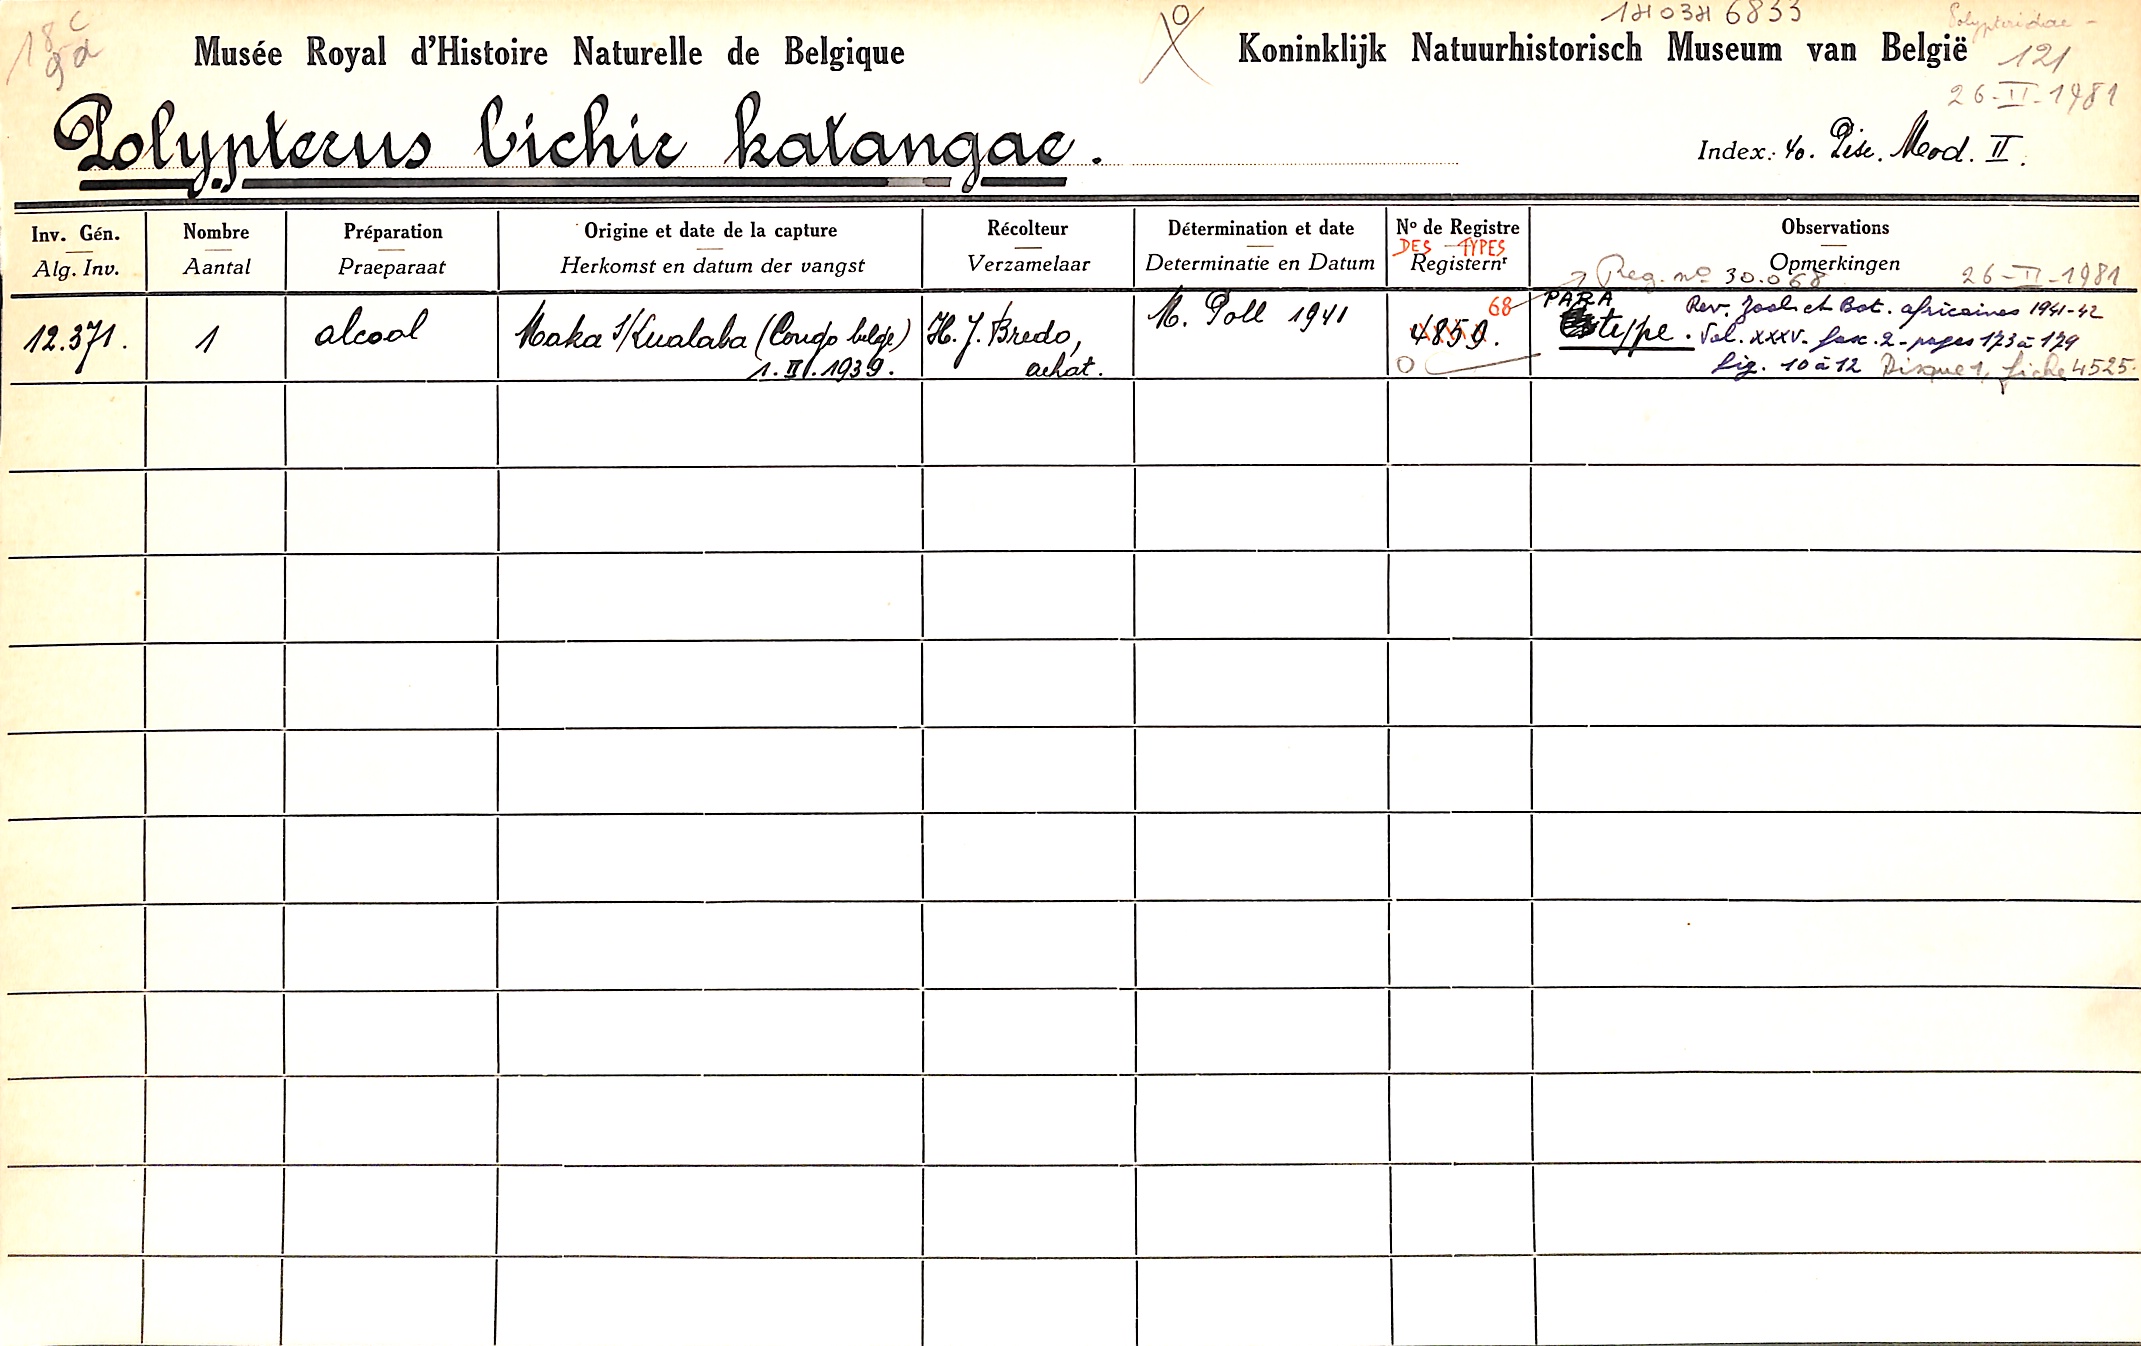 18c
9d
1H03H 6833
Polypteridae -
Musée Royal d'Histoire Naturelle de Belgique
Koninklijk Natuurhistorisch Museum van België
121
26-II-1981
Polypterus bichir katangae.
Index: 40. Pisc. Mod. II.
Inv. Gén. Nombre Préparation Origine et date de la capture Récolteur Détermination et date Nº de Registre Observations
DES TYPES
Alg. Inv. Aantal Praeparaat Herkomst en datum der vangst Verzamelaar Determinatie en Datum Registernr Opmerkingen
Reg. nº 30.068 26-II-1981
12.371. 1 alcool Maka s/Lualaba (Congo belge) H. J. Bredo, M. Poll 1941 68 PARA Rev. Zool. et Bot. africaines 1941-42
4859. type. Vol. XXXV. fasc. 2 - pages 173 à 179
1. II. 1939. achat. fig. 10 à 12 Disque 1, fiche 4525.